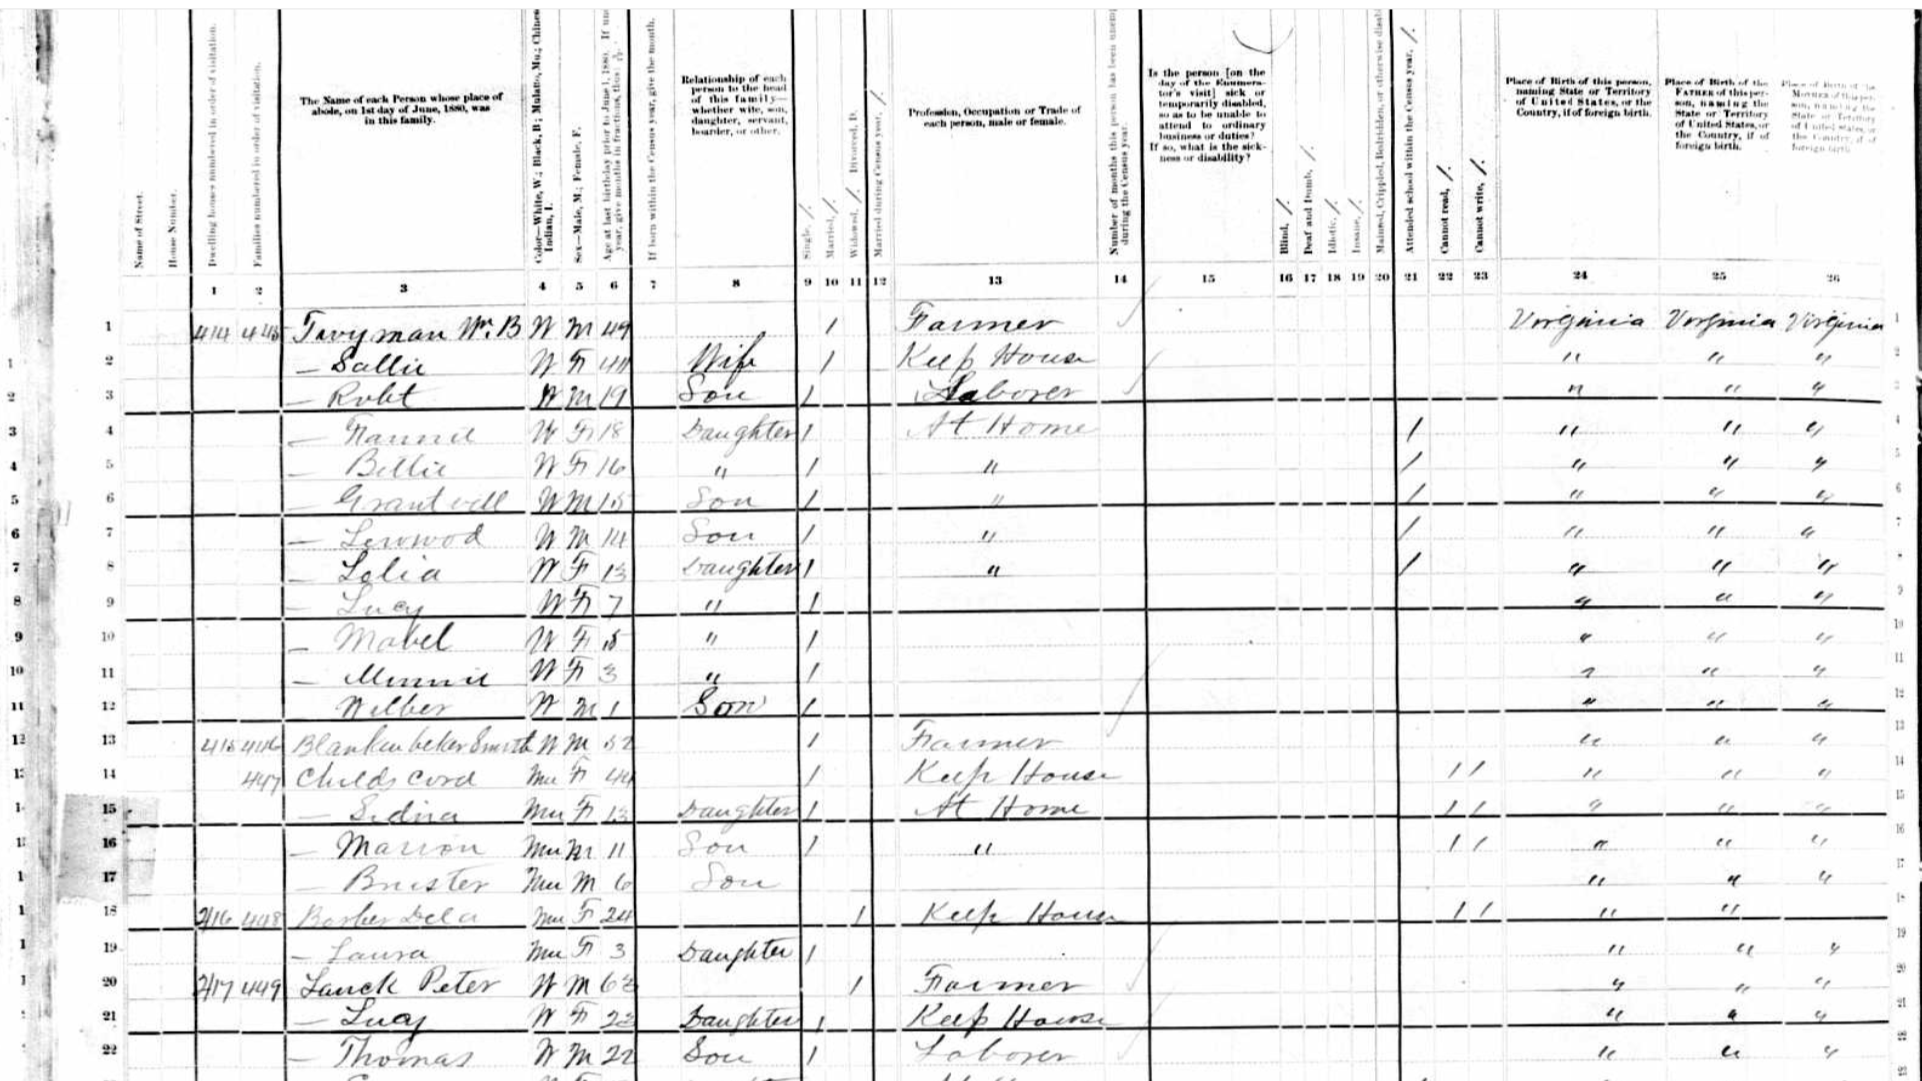 Name of Street.
House Number.
Dwelling houses numbered in order of visitation.
Families numbered in order of visitation.
The Name of each Person whose place of
abode, on 1st day of June, 1880, was
in this family.
Color—White, W.; Black, B.; Mulatto, Mu.; Chines
Indian, I.
Sex—Male, M.; Female, F.
Age at last birthday prior to June 1, 1880. If un
year, give months in fractions, thus:
If born within the Census year, give the month.
Relationship of each
person to the head
of this family—
whether wife, son,
daughter, servant,
boarder, or other.
Single, /.
Married, /.
Widowed, /. Divorced, D.
Married during Census year, /.
Profession, Occupation or Trade of
each person, male or female.
Number of months this person has been unemp
during the Census year.
Is the person [on the
day of the Enumera-
tor's visit] sick or
temporarily disabled,
so as to be unable to
attend to ordinary
business or duties?
If so, what is the sick-
ness or disability?
Blind, /.
Deaf and Dumb, /.
Idiotic, /.
Insane, /.
Maimed, Crippled, Bedridden, or otherwise disab
Attended school within the Census year, /.
Cannot read, /.
Cannot write, /.
Place of Birth of this person,
naming State or Territory
of United States, or the
Country, if of foreign birth.
Place of Birth of the
FATHER of this per-
son, naming the
State or Territory
of United States, or
the Country, if of
foreign birth.
Place of Birth of the
MOTHER of this per-
son, naming the
State or Territory
of United States, or
the Country, if of
foreign birth.
1 2 3 4 5 6 7 8 9 10 11 12 13 14 15 16 17 18 19 20 21 22 23 24 25 26
1 414 445 Twyman Wm. B W M 49 / Farmer Virginia Virginia Virginia 1
1 2 — Sallie W F Wife / Keep House " " " 2
2 3 — Robt W M 19 Son / Laborer " " " 3
3 4 — Fannie W F 18 Daughter / At Home / " " " 4
4 5 — Bettie W F 16 " / " / " " " 5
5 6 — W M 15 Son / " / " " " 6
6 7 — W M 14 Son / " / " " " 7
7 8 — Lelia W F 13 Daughter / " / " " " 8
8 9 — Lucy W F 7 " / " " "
9 10 — Mabel W F 5 " / " " " 10
10 11 — Minnie W F 3 " / " " " 11
11 12 Wilber W M 1 Son / " " " 12
12 13 415 446 Blankenbeker Smith W M 52 / Farmer " " " 13
14 447 Childs Cord Mu F / Keep House / / " " " 14
15 — Mu F 13 Daughter / At Home / / " " " 15
16 — Marion Mu M 11 Son / " / / " " " 16
17 — Mu M 6 Son " " "
18 416 448 Barber Dela Mu F 24 / Keep House / / " "
19 — Laura Mu F 3 Daughter / " " " 19
20 417 449 Lauck Peter W M / Farmer " " " 20
21 — Lucy W F Daughter / Keep House " " " 21
22 — Thomas W M 22 Son / Laborer " " "